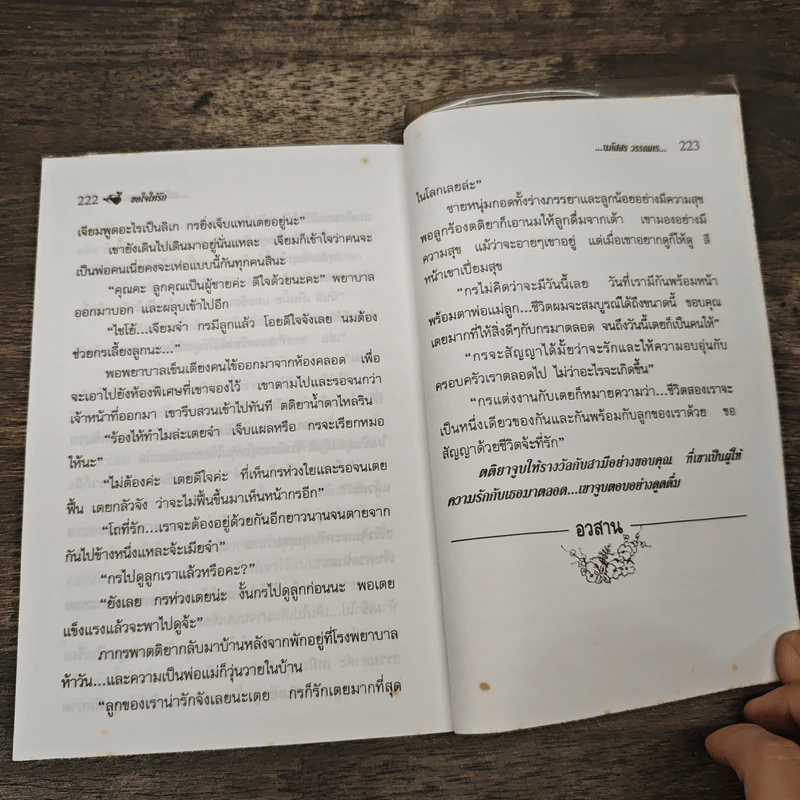 222 ขอใจให้รัก
เจียมพูดอะไรเป็นลิเก กรยิ่งเจ็บแทนเตยอยู่นะ”
เขายังเดินไปเดินมาอยู่นั่นแหละ เจียมก็เข้าใจว่าคนจะ
เป็นพ่อคนเนี่ยคงจะเห่อแบบนี้กันทุกคนสินะ
“คุณคะ ลูกคุณเป็นผู้ชายค่ะ ดีใจด้วยนะคะ” พยาบาล
ออกมาบอก และผลุบเข้าไปอีก
“ไชโย้...เจียมจ๋า กรมีลูกแล้ว โอยดีใจจังเลย นมต้อง
ช่วยกรเลี้ยงลูกนะ...”
พอพยาบาลเข็นเตียงคนไข้ออกมาจากห้องคลอด เพื่อ
จะเอาไปยังห้องพิเศษที่เขาจองไว้ เขาตามไปและรอจนกว่า
เจ้าหน้าที่ออกมา เขารีบสวนเข้าไปทันที ตติยาน้ำตาไหลริน
“ร้องไห้ทำไมล่ะเตยจ๋า เจ็บแผลหรือ กรจะเรียกหมอ
ให้นะ”
“ไม่ต้องค่ะ เตยดีใจค่ะ ที่เห็นกรห่วงใยและรอจนเตย
ฟื้น เตยกลัวจัง ว่าจะไม่ฟื้นขึ้นมาเห็นหน้ากรอีก”
“โถที่รัก...เราจะต้องอยู่ด้วยกันอีกยาวนานจนตายจาก
กันไปข้างหนึ่งแหละจ้ะเมียจ๋า”
“กรไปดูลูกเราแล้วหรือคะ?”
“ยังเลย กรห่วงเตยน่ะ งั้นกรไปดูลูกก่อนนะ พอเตย
แข็งแรงแล้วจะพาไปดูจ้ะ”
ภากรพาตติยากลับมาบ้านหลังจากพักอยู่ที่โรงพยาบาล
ห้าวัน...และความเป็นพ่อแม่ก็วุ่นวายในบ้าน
“ลูกของเราน่ารักจังเลยนะเตย กรก็รักเตยมากที่สุด
...นภัสสร วรรณกร... 223
ในโลกเลยล่ะ”
ชายหนุ่มกอดทั้งร่างภรรยาและลูกน้อยอย่างมีความสุข
พอลูกร้องตติยาก็เอานมให้ลูกดื่มจากเต้า เขามองอย่างมี
ความสุข แม้ว่าจะอายๆเขาอยู่ แต่เมื่อเขาอยากดูก็ให้ดู สี
หน้าเขาเปี่ยมสุข
“กรไม่คิดว่าจะมีวันนี้เลย วันที่เรามีกันพร้อมหน้า
พร้อมตาพ่อแม่ลูก...ชีวิตผมจะสมบูรณ์ได้ถึงขนาดนี้ ขอบคุณ
เตยมากที่ให้สิ่งดีๆกับกรมาตลอด จนถึงวันนี้เตยก็เป็นคนให้”
“กรจะสัญญาได้มั้ยว่าจะรักและให้ความอบอุ่นกับ
ครอบครัวเราตลอดไป ไม่ว่าอะไรจะเกิดขึ้น”
“กรแต่งงานกับเตยก็หมายความว่า...ชีวิตสองเราจะ
เป็นหนึ่งเดียวของกันและกันพร้อมกับลูกของเราด้วย ขอ
สัญญาด้วยชีวิตจ้ะที่รัก”
ตติยาจูบให้รางวัลกับสามีอย่างขอบคุณ ที่เขาเป็นผู้ให้
ความรักกับเธอมาตลอด...เขาจูบตอบอย่างดูดดื่ม
อวสาน